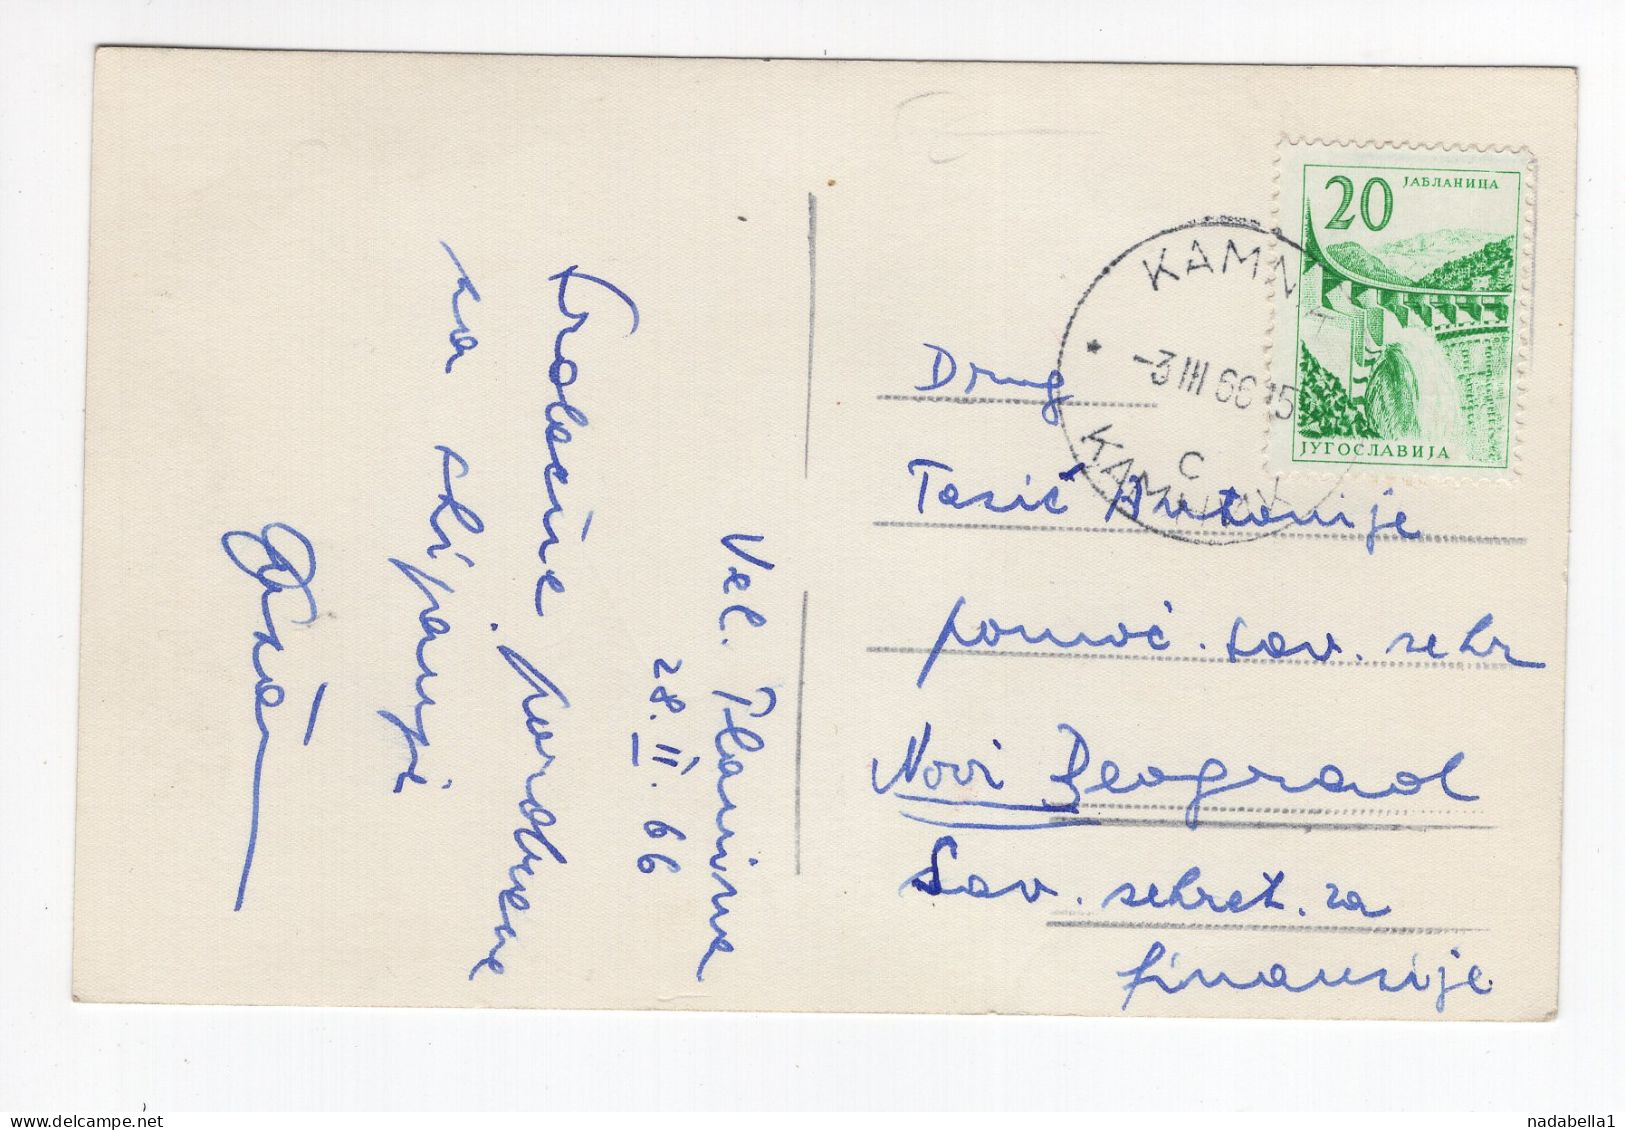 Vel. Planina
28. II. 66
pozdrave
sa skijanja
20
ЈАБЛАНИЦА
ЈУГОСЛАВИЈА
KAMNIK
-3 III 66 15
C
КАМНИК
Drug
Tasić Antonije
pomoć. sav. sekr
Novi Beograd
Sav. sekret. za
finansije
nadabella1